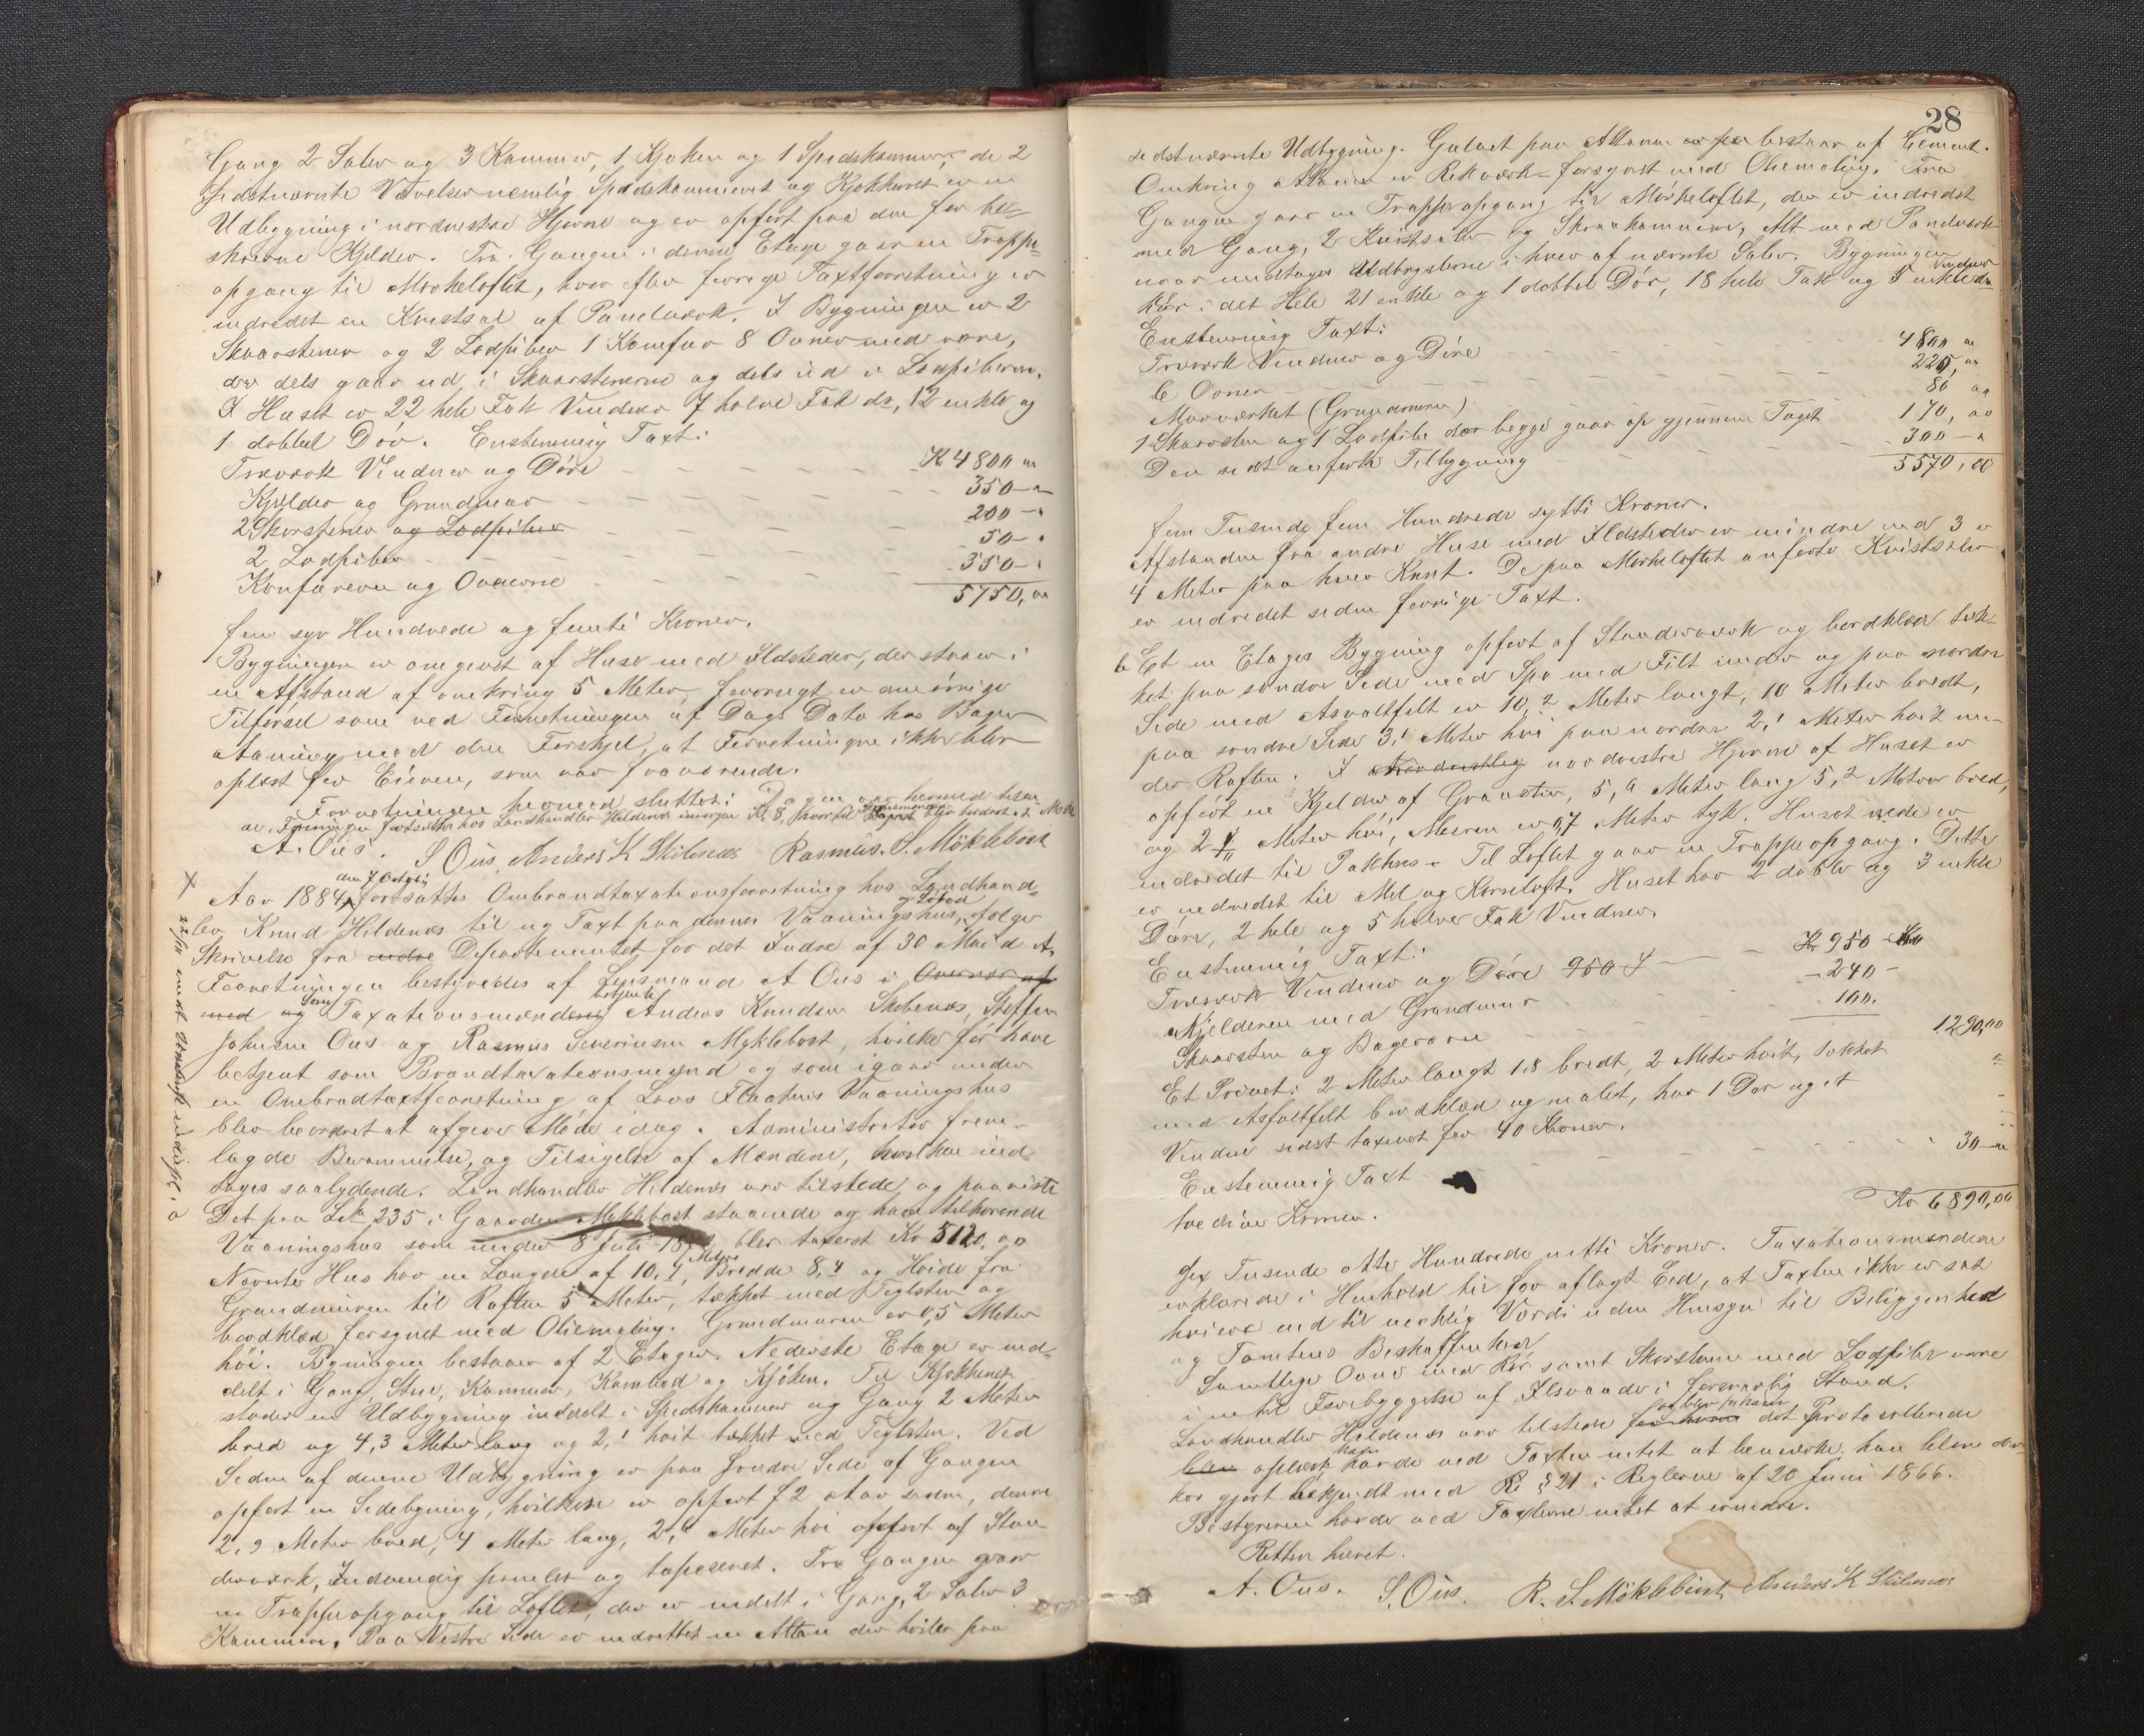 Gang 2 Saler og 3 Kammer, 1 Kjøken og 1 Spedskammer, de 2
sidstnævnte Værelser nemlig Spedskammeret og Kjøkkenet er en
Udbygning i nordvestre Hjørne og er opført paa den før be-
skrevne Kjelder. Fra Gangen i denne Etage gaar en Trappe-
opgang til Mørkeloftet, hvor efter forrige Taxtforretning er
indredet en Kvistsal af Panelverk. I Bygningen er 2
Skaarstener og 2 Lodpiber 1 Komfur 8 Ovner med rører,
der dels gaar ud i Skaarstenerne og dels ud i Lodpiberne.
I Huset er 22 hele Fak Vinduer 7 halve Fak do, 12 enkle og
1 dobbel Dør. Enstemmig Taxt:
Træverk Vinduer og Døre Kr 4800 "
Kjelder og Grundmur 350 - "
2 Skorstener og Lodpiber 200 - "
2 Lodpiber 50 - "
Komfuren og Ovnerne 350 - "
5750, "
fem syv Hundrede og femti Kroner.
Bygningen er omgivet af Huse med Ildsteder, der staar i
en Afstand af omkring 5 Meter, forøvrigt er om øvrige
Tilførsel som ved Forretningen af Dags Dato hos Bager
med den Forskjel, at Forretningen ikke blev
oplæst for Eieren, som var fraværende.
Forretningen hermed sluttet:
Landhandler Hildenes imorgen Kl. 8,
A. Ous. S Ous, Anders K Skibenes Rasmus. S. Møklebost
den 7 Octobr
X Aar 1884 fortsattes Ombrandtaxationsforretning hos Landhand-
ler Knud Hildenes til og Taxt paa dennes Vaaningshus, ifølge
Skrivelse fra indre Departementet for det Indre af 30 Mai d A.
Forretningen bestyredes af Lensmand A Ous i Overvær af
med og som Taxationsmændene Anders Knudsen Skibenes, Steffen
Johnsen Ous og Rasmus Severinsen Myklebost, hvilke før have
betjent som Brandtaxationsmænd og som igaar under
en Ombrandtaxtforretning af Lars Flaatenes Vaaningshus
blev beordret at afgive Møde idag. Administrator frem-
lagde Berammelse, og Tilsigelse af Mændene, hvilken ind-
tages saalydende. Landhandler Hildenes var tilstede og paaviste
Det paa Litr 235 i Gaarden Møklebost staaende og ham tilhørende
Vaaningshus som under 8 Juli 18 blev taxeret Kr 5120. 00
Nævnte Hus har en Længde af 10,4 Meter, Bredde 8,4 og Høide fra
Grundmuren til Raften 5 Meter, tækket med Teglsten og
bordklæd forsynet med Oliemaling. Grundmuren er 0,5 Meter
høi. Bygningen bestaar af 2 Etager. Nederste Etage er ind-
delt i Gang, Stue, Kammer, Kambod og Kjøken. Til Kjøkkenet
støder en Udbygning inddelt i Spedskammer og Gang 2 Meter
bred og 4,3 Meter lang og 2,1 høit tækket med Teglsten. Ved
Siden af denne Udbygning er paa søndre Side af Gangen
opført en Sidebygning, hvilken er opført f 2 Aar siden, denne
2,9 Meter bred, 4 Meter lang, 2, Meter høi opført af Stan-
derværk, Indvendig panelet og tapeseret. Fra Gangen gaar
en Trappeopgang til Loftet, der er inddelt i Gang, 2 Saler 3
Kammer. Paa Vestre Side er indrettet en Altan der hviler paa
28
sidstnævnte Udbygning. Gulvet paa Altanen er bestaar af Cement.
Omkring Altanen er Rekværk forsynet med Oliemaling. Fra
Gangen gaar en Trappeopgang til Mørkeloftet, der er indredet
med Gang, 2 Kvistsaler og Skraakammere, Alt med Panelverk
naar undtages Udbygslerne i hver af nævnte Saler. Bygningen
har i det Hele 21 enkle og 1 dobbel Dør, 18 hele Fak og 5 enkle do
Vinduer
Enstemmig Taxt:
Træverk Vinduer og Døre 4800 "
6 Ovner 220, "
Murværket (Grundmuren) 80 "
1 Skaarsten og 1 Lodpibe der begge gaar op gjennem Taget 170, "
Den sidst anførte Tilbygning 300 - "
5570, 00
fem Tusinde fem Hundrede sytti Kroner.
Afstanden fra andre Huse med Ildsteder er mindre end 3 a
4 Meter paa hver Kant. De paa Mørkeloftet anførte Kvistsaler
er indredet siden forrige Taxt.
b Et en Etages Bygning opført af Standerverk og bordklæd tæk-
ket paa søndre Side med Spo med Filt under og paa nordre
Side med Asvaltfilt er 10,2 Meter langt, 10 Meter bredt,
paa søndre Side 3,1 Meter høi paa nordre 2,1 Meter høit un-
der Raften. I nordvestre Hjørne af Huset er
opført en Kjelder af Graasten, 5,9 Meter lang 5,2 Meter bred,
og 2 Meter høi, Muren er 0,7 Meter tyk. Huset nede er
indredet til Pakhus - Til Loftet gaar en Trappeopgang. Dette
er indredet til Mel og Kornloft. Huset har 2 doble og 3 enkle
Døre, 2 hele og 5 halve Fak Vinduer.
Enstemmig Taxt:
Træverk Vinduer og Døre 950 Kr 950
Kjelderen med Grundmur - 240 -
Skaarsten og Bagerovn 100.
1290,00
Et Privet: 2 Meter langt 1.8 bredt, 2 Meter høit, tækket
med Asfaltfilt bordklæd og malet, har 1 Dør og et
Vindue sidst taxeret for 40 Kroner.
Enstemmig Taxt 30 - "
tredive Kroner.
Kr 6890,00
Sex Tusinde otte Hundrede nitti Kroner. Taxationsmændene
erklærede i Henhold til før aflagt Eed, at Taxten ikke er sat
høiere end til virkelig Værdi uden Hensyn til Beliggenhed
og Tomtens Beskaffenhed.
Samtlige Ovne med Rør samt Skorstene med Lodpiber vare
i en til Forebyggelse af Ildsvaade i forsvarlig Stand.
Landhandler Hildenes var tilstede det Protocollerede
oplæst, havde ved Taxten intet at bemærke. han blev der-
hos gjort bekjendt med § 21 i Reglerne af 20 Juni 1866.
Bestyreren havde ved Taxterne intet at erindre.
Retten hævet.
A. Ous. S. Ous. R. S. Møklebust, Anders K Skibenes